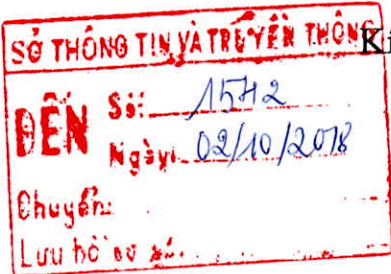 SỞ THÔNG TIN VÀ TRUYỀN THÔNG Ki
ĐẾN Số: 1542
Ngày: 02/10/2018
Chuyển:
Lưu hồ sơ số: